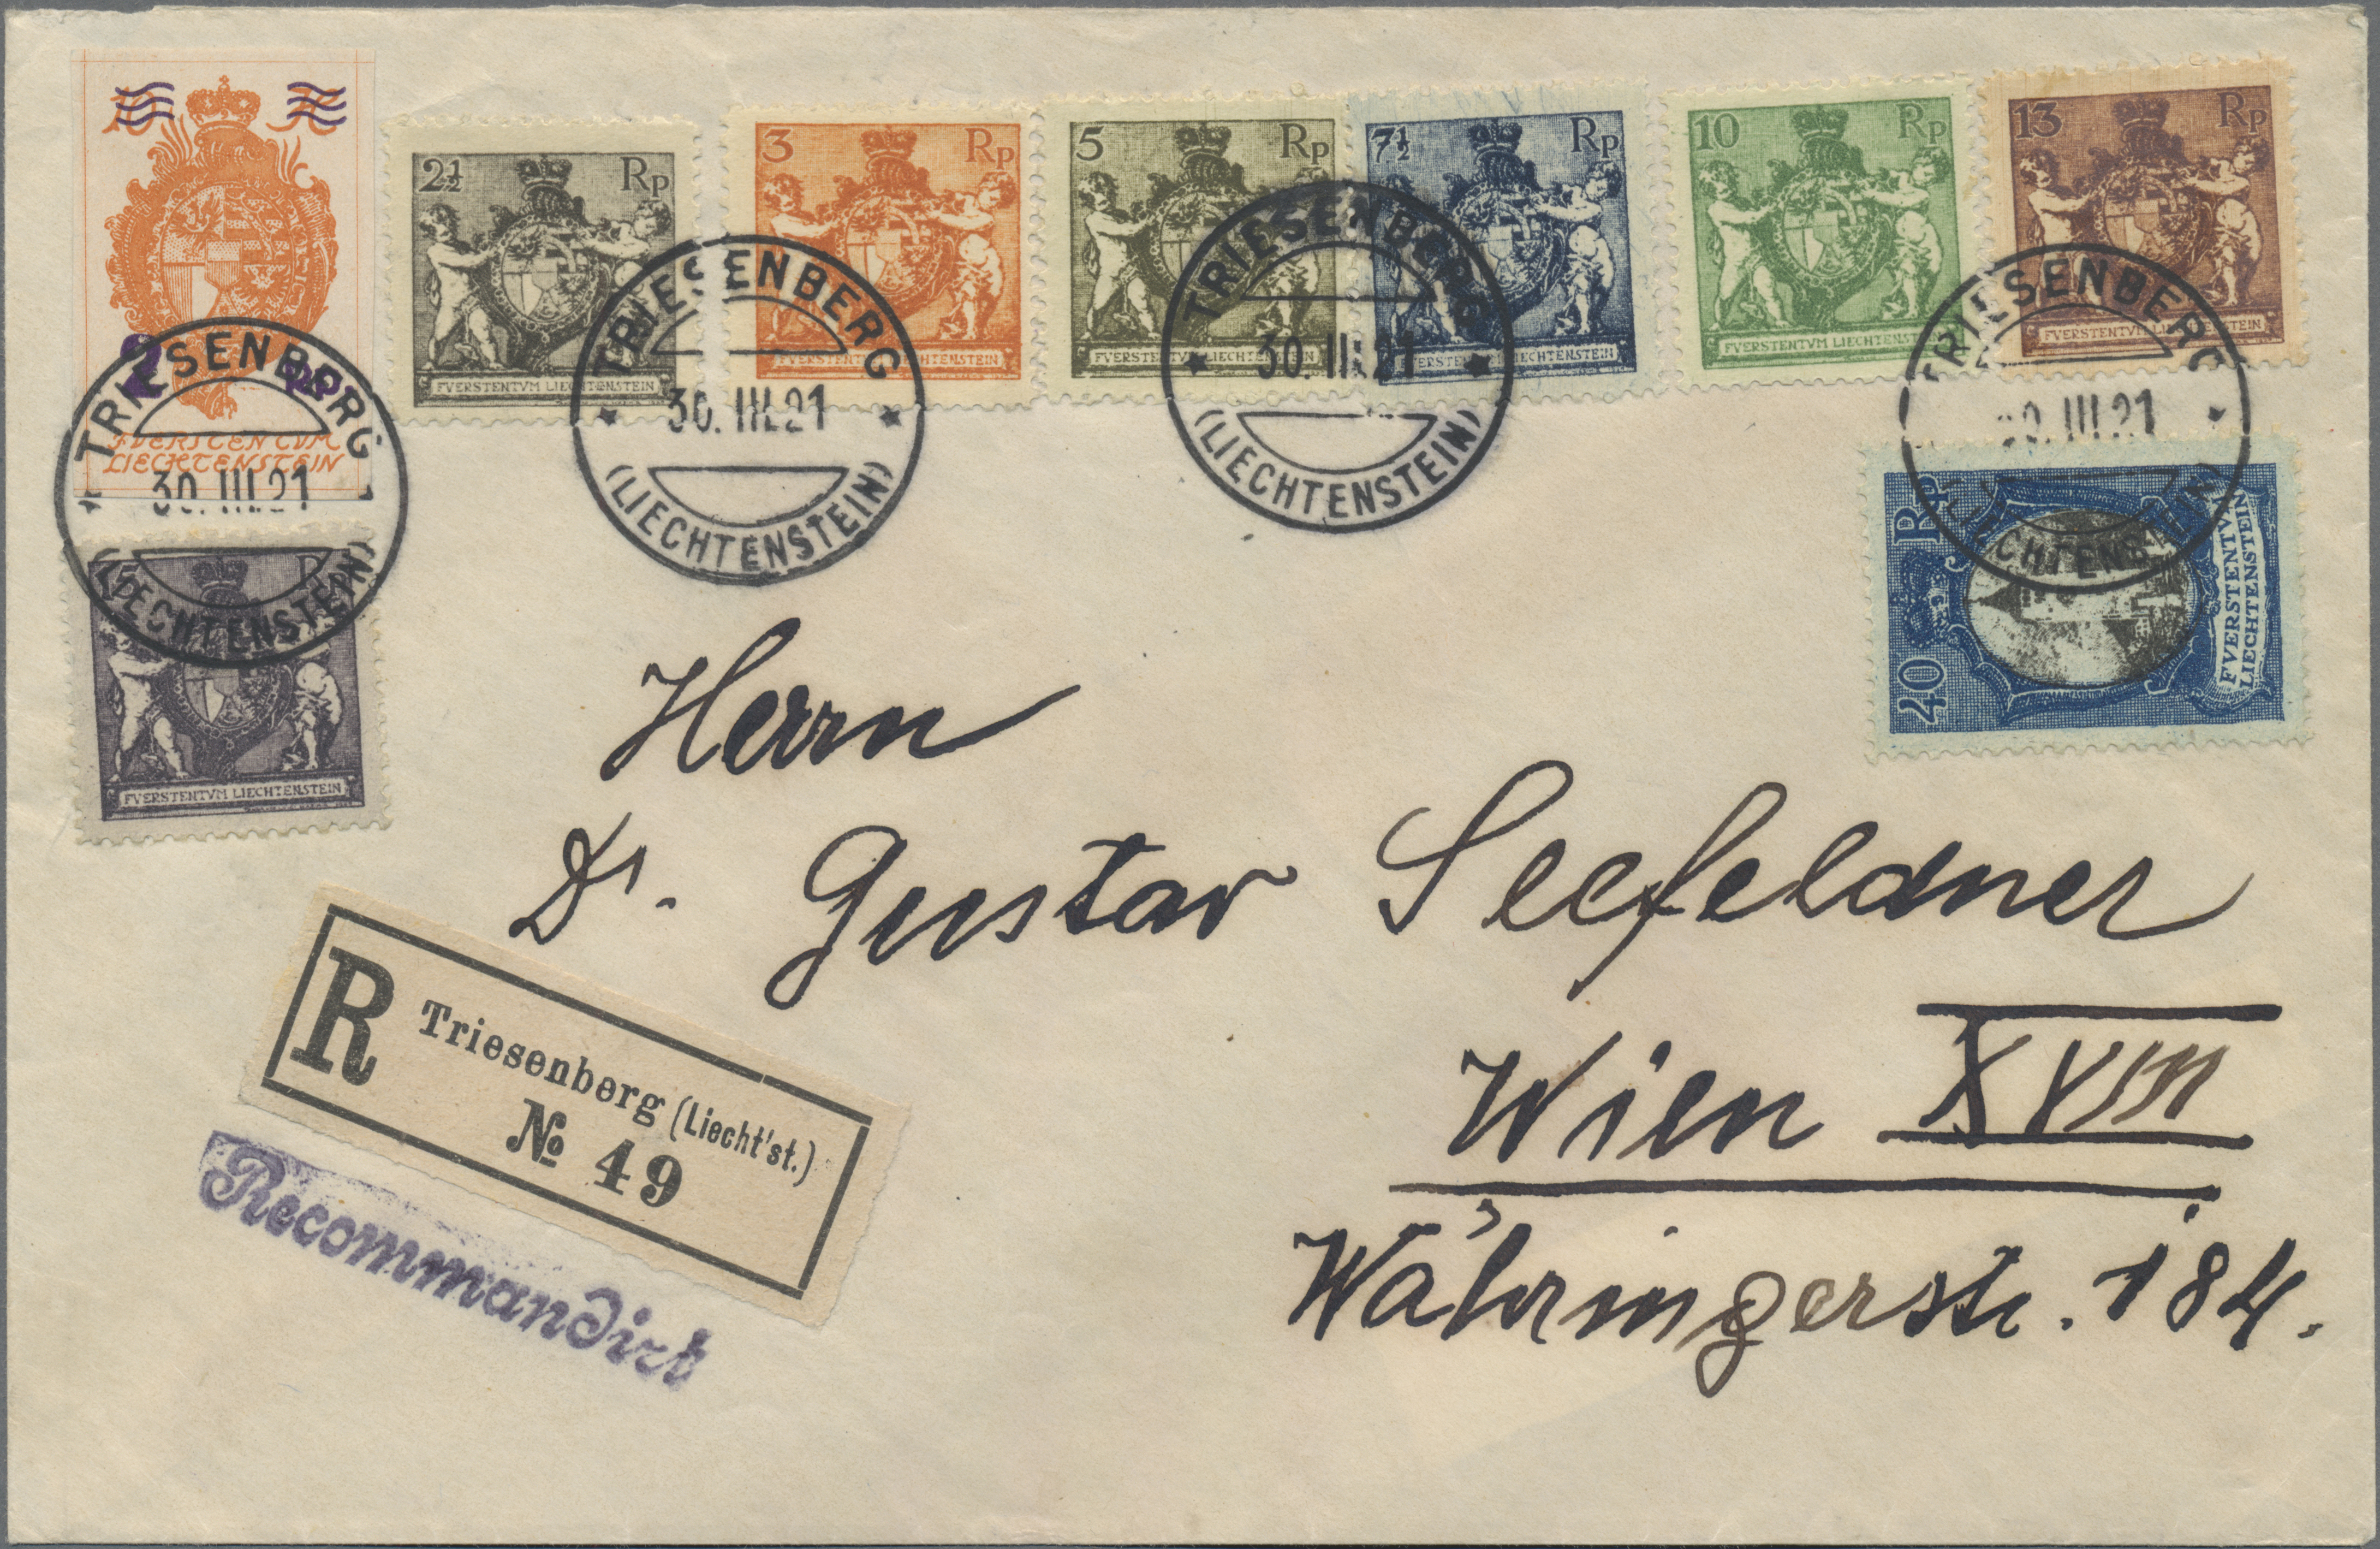 2½ Rp
FVERSTENTVM LIECHTENSTEIN
3 Rp
FVERSTENTVM LIECHTENSTEIN
5 Rp
FVERSTENTVM LIECHTENSTEIN
7½ Rp
FVERSTENTVM LIECHTENSTEIN
10 Rp
FVERSTENTVM LIECHTENSTEIN
13 Rp
FVERSTENTVM LIECHTENSTEIN
FVERSTENTVM
LIECHTENSTEIN
TRIESENBERG
30.III.21
(LIECHTENSTEIN)
TRIESENBERG
30.III.21
(LIECHTENSTEIN)
TRIESENBERG
30.III.21
(LIECHTENSTEIN)
TRIESENBERG
30.III.21
(LIECHTENSTEIN)
FVERSTENTVM LIECHTENSTEIN
40 Rp
FVERSTENTVM
LIECHTENSTEIN
Herrn
Dr. Gustav Seefeldner
Wien XVIII
Währingerstr. 184.
R Triesenberg (Liecht'st.)
№ 49
Recommandirt